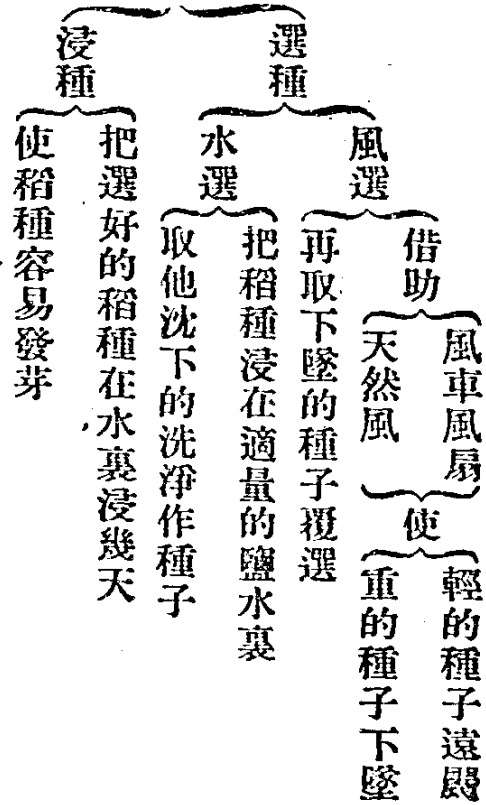 選種
風選
借助
風車風扇
天然風
使
輕的種子遠颺
重的種子下墜
再取下墜的種子覆選
水選
把稻種浸在適量的鹽水裏
取他沈下的洗淨作種子
浸種
把選好的稻種在水裏浸幾天
使稻種容易發芽